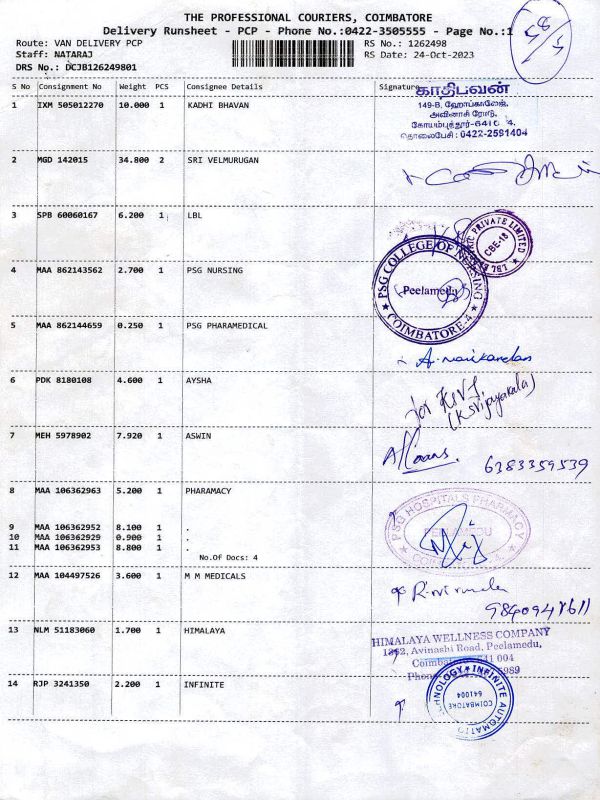 THE PROFESSIONAL COURIERS, COIMBATORE
Delivery Runsheet - PCP - Phone No.:0422-3505555 - Page No.:1
Route: VAN DELIVERY PCP
Staff: NATARAJ
DRS No.: DCJB126249801
RS No.: 1262498
RS Date: 24-Oct-2023
S No Consignment No Weight PCS Consignee Details Signature
1 IXM 505012270 10.000 1 KADHI BHAVAN
காதிபவன்
149-B, ஹோப்காலேஜ்,
அவினாசி ரோடு,
கோயம்புத்தூர்-641004.
தொலைபேசி : 0422-2591404
2 MGD 142015 34.800 2 SRI VELMURUGAN
3 SPB 60060167 6.200 1 LBL
PRIVATE LIMITED
CBE-18
4 MAA 862143562 2.700 1 PSG NURSING
PSG COLLEGE OF NURSING
Peelamedu
COIMBATORE-4
5 MAA 862144659 0.250 1 PSG PHARAMEDICAL
A. Manikandan
6 PDK 8180108 4.600 1 AYSHA
for K.S.V.J.
(K.S.Vijayakala)
7 MEH 5978902 7.920 1 ASWIN
6383359539
8 MAA 106362963 5.200 1 PHARAMACY
PSG HOSPITALS PHARMACY
PEELAMEDU
9 MAA 106362952 8.100 1 .
10 MAA 106362929 0.900 1 .
11 MAA 106362953 8.800 1 .
No.Of Docs: 4
12 MAA 104497526 3.600 1 M M MEDICALS
13 NLM 51183060 1.700 1 HIMALAYA
HIMALAYA WELLNESS COMPANY
Avinashi Road, Peelamedu,
14 RJP 3241350 2.200 1 INFINITE
INFINITE AUTOMATION
COIMBATORE
641004